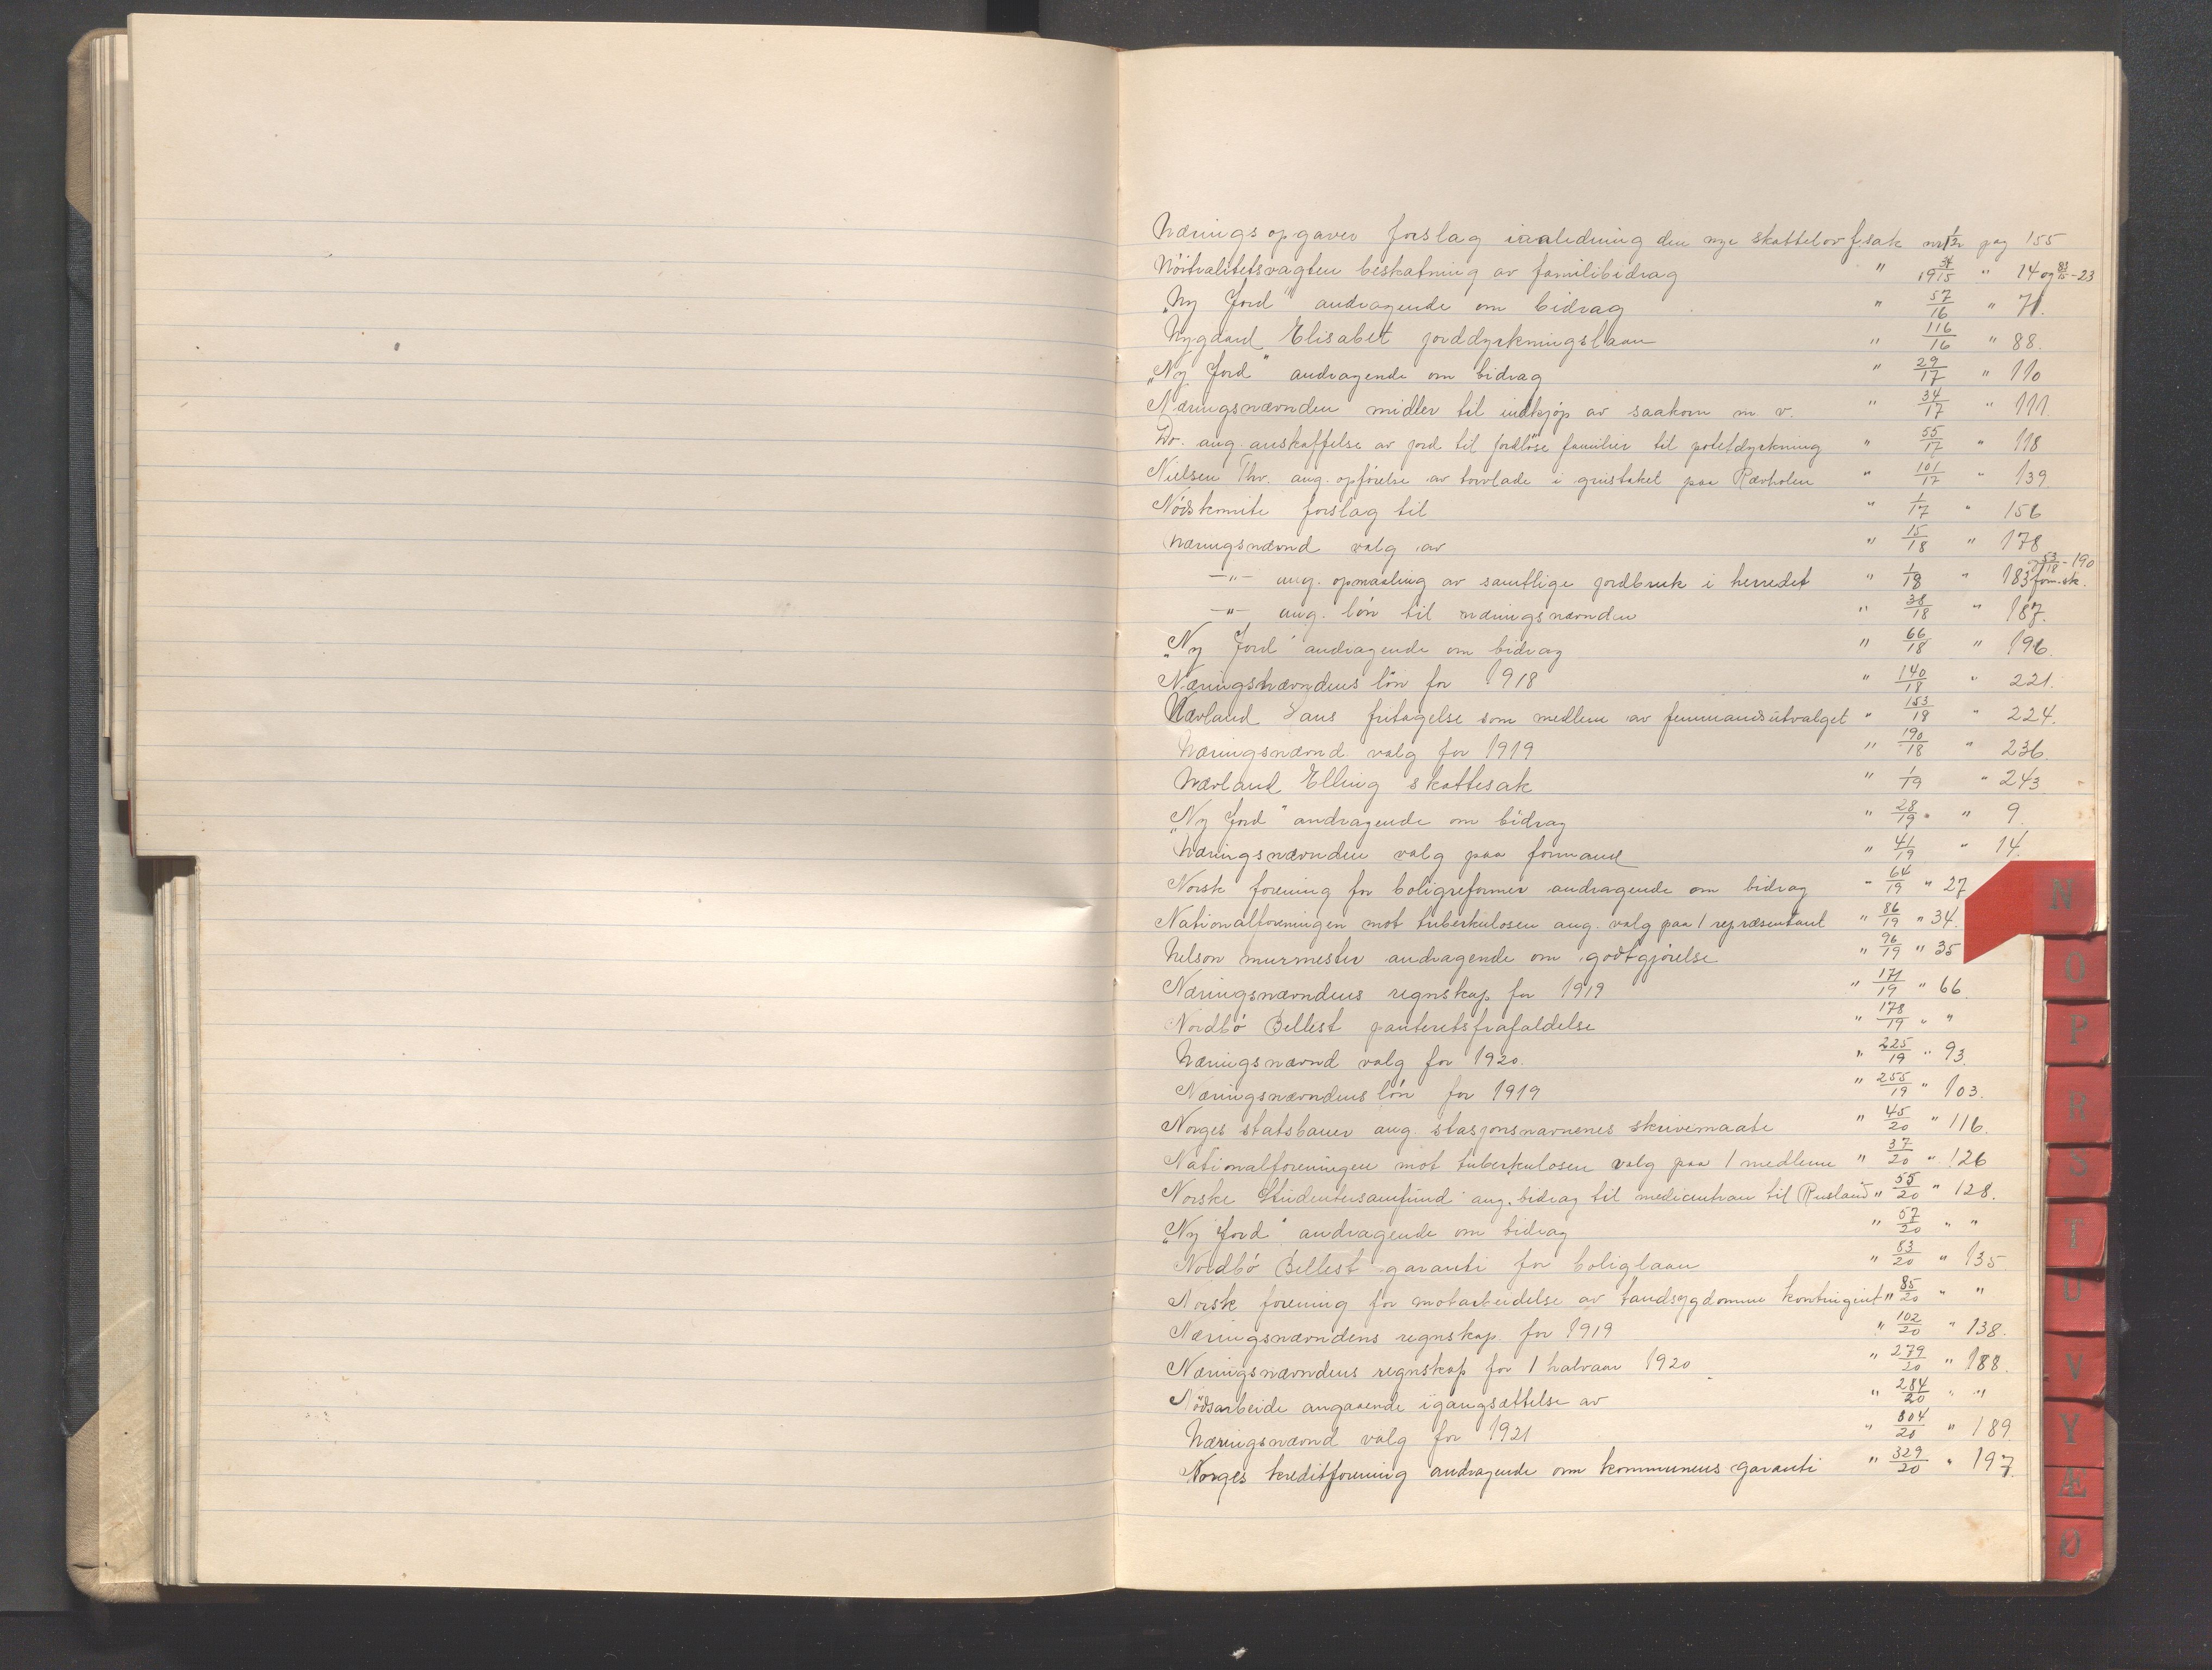 Næringsopgaver forslag ianledning den nye skattelov f. sak nr 1/12 pag 155
Nöitralitetsvagten beskatning av familibidrag " 19 34/15 " 14 og 83/15 - 23
„Ny Jord" andragende om bidrag " 57/16 " 71.
Nygaard Elisabet jorddyrkningslaan " 116/16 " 88.
„Ny Jord" andragende om bidrag " 29/17 " 110
Næringsnævnden midler til indkjøp av saakorn m. v. " 34/17 " 111.
Do. ang. anskaffelse av jord til jordlöse familier til potetdyrkning " 55/17 " 118
Nielsen Thv. ang. opförelse av torvlade i grustaket paa Rævholen " 101/17 " 139
Nödskomite forslag til " 1/17 " 156
Næringsnævnd valg av " 15/18 " 178
—"— ang. opmaaling av samtlige jordbruk i herredet " 1/18 " 183 53/18 - 190 fom. sk.
—"— ang. lön til næringsnævnden " 38/18 " 187.
„Ny Jord" andragende om bidrag " 66/18 " 196.
Næringsnævndens lön for 1918 " 140/18 " 221.
Nærland Lars fritagelse som medlem av femmandsutvalget " 153/18 " 224.
Næringsnævnd valg for 1919 " 190/18 " 236.
Nærland Elling skattesak " 1/19 " 243
„Ny Jord" andragende om bidrag " 28/19 " 9.
Næringsnævnden valg paa formand " 41/19 " 14.
Norsk forening for boligreformer andragende om bidrag " 64/19 " 27
Nationalforeningen mot tuberkulosen ang. valg paa 1 repræsentant " 86/19 " 34.
Nelson murmester andragende om godtgjörelse " 96/19 " 35
Næringsnævndens regnskap for 1919 " 171/19 " 66
Nordbö Bellest panteretsfrafaldelse " 178/19 " "
Næringsnævnd valg for 1920. " 225/19 " 93
Næringsnævndens lön for 1919 " 255/19 " 103.
Norges statsbaner ang. stasjonsnavnenes skrivemaate " 45/20 " 116.
Nationalforeningen mot tuberkulosen valg paa 1 medlem " 37/20 " 126
Norske Studentersamfund ang. bidrag til medicintran til Rusland " 55/20 " 128.
„Ny Jord" andragende om bidrag " 57/20 " "
Nordbö Bellest garanti for boliglaan " 83/20 " 135
Norsk forening for motarbeidelse av tandsygdomme kontingent " 85/20 " "
Næringsnævndens regnskap for 1919 " 102/20 " 138.
Næringsnævndens regnskap for 1 halvaar 1920 " 279/20 " 188.
Nödsarbeide angaaende igangsættelse av " 284/20 " "
Næringsnævnd valg for 1921 " 304/20 " 189
Norges kreditforening andragende om kommunens garanti " 329/20 " 197.
N
O
P
R
S
T
U
V
Y
Æ
Ø